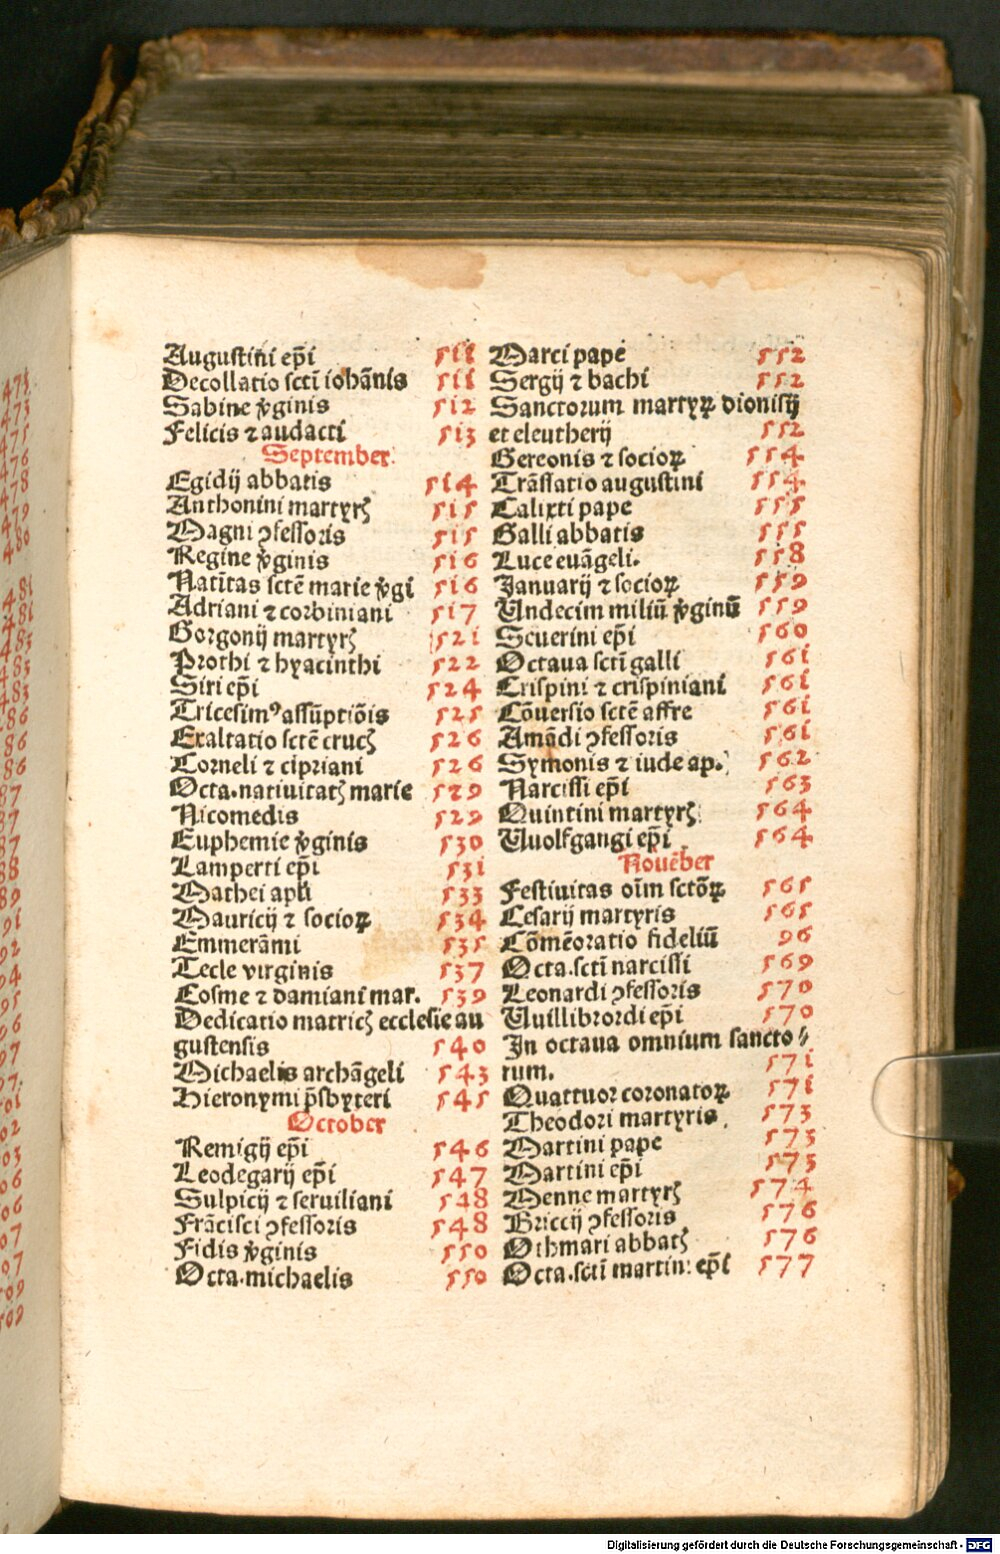 Augustini ep̄i 511
Decollatio sctī ioh̄anis 511
Sabine v̄ginis 512
Felicis ⁊ audacti 513
September.
Egidij abbatis 514
Anthonini martyrꝭ 515
Magni ꝯfessoris 515
Regine v̄ginis 516
Natītas sctē marie v̄gi 516
Adriani ⁊ corbiniani 517
Gorgonij martyrꝭ 521
Prothi ⁊ hyacinthi 522
Siri ep̄i 524
Tricesimꝰ assūptiōis 525
Exaltatio sctē crucꝭ 526
Corneli ⁊ cipriani 526
Octa.natiuitatꝭ marie 529
Nicomedis 529
Euphemie v̄ginis 530
Lamperti ep̄i 531
Mathei apłi 533
Mauricij ⁊ socioꝝ 534
Emmerāmi 535
Tecle virginis 537
Cosme ⁊ damiani mar. 539
Dedicatio matricꝭ ecclesie au
gustensis 540
Michaelis archāgeli 543
Hieronymi p̄sbyteri 545
October
Remigij ep̄i 546
Leodegarij ep̄i 547
Sulpicij ⁊ seruiliani 548
Frācisci ꝯfessoris 548
Fidis v̄ginis 550
Octa.michaelis 550
Marci pape 552
Sergij ⁊ bachi 552
Sanctorum martyꝝ dionisij
et eleutherij 552
Gereonis ⁊ socioꝝ 554
Trāslatio augustini 554
Calixti pape 555
Galli abbatis 555
Luce euāgeli. 558
Januarij ⁊ socioꝝ 559
Undecim miliū v̄ginū 559
Seuerini ep̄i 560
Octaua sctī galli 561
Crispini ⁊ crispiniani 561
Cōuersio sctē affre 561
Amādi ꝯfessoris 561
Symonis ⁊ iude ap. 562
Narcissi ep̄i 563
Quintini martyrꝭ 564
Wuolfgangi ep̄i 564
Nouēber
Festiuitas oīm sctōꝝ 565
Cesarij martyris 565
Cōmēoratio fideliū 96
Octa.sctī narcissi 569
Leonardi ꝯfessoris 570
Wuillibrordi ep̄i 570
In octaua omnium sancto⸗
rum. 571
Quattuor coronatoꝝ 571
Theodori martyris 573
Martini pape 573
Martini ep̄i 573
Menne martyrꝭ 574
Briccij ꝯfessoris 576
Othmari abbatꝭ 576
Octa.sctī martini ep̄i 577
Digitalisierung gefördert durch die Deutsche Forschungsgemeinschaft - DFG